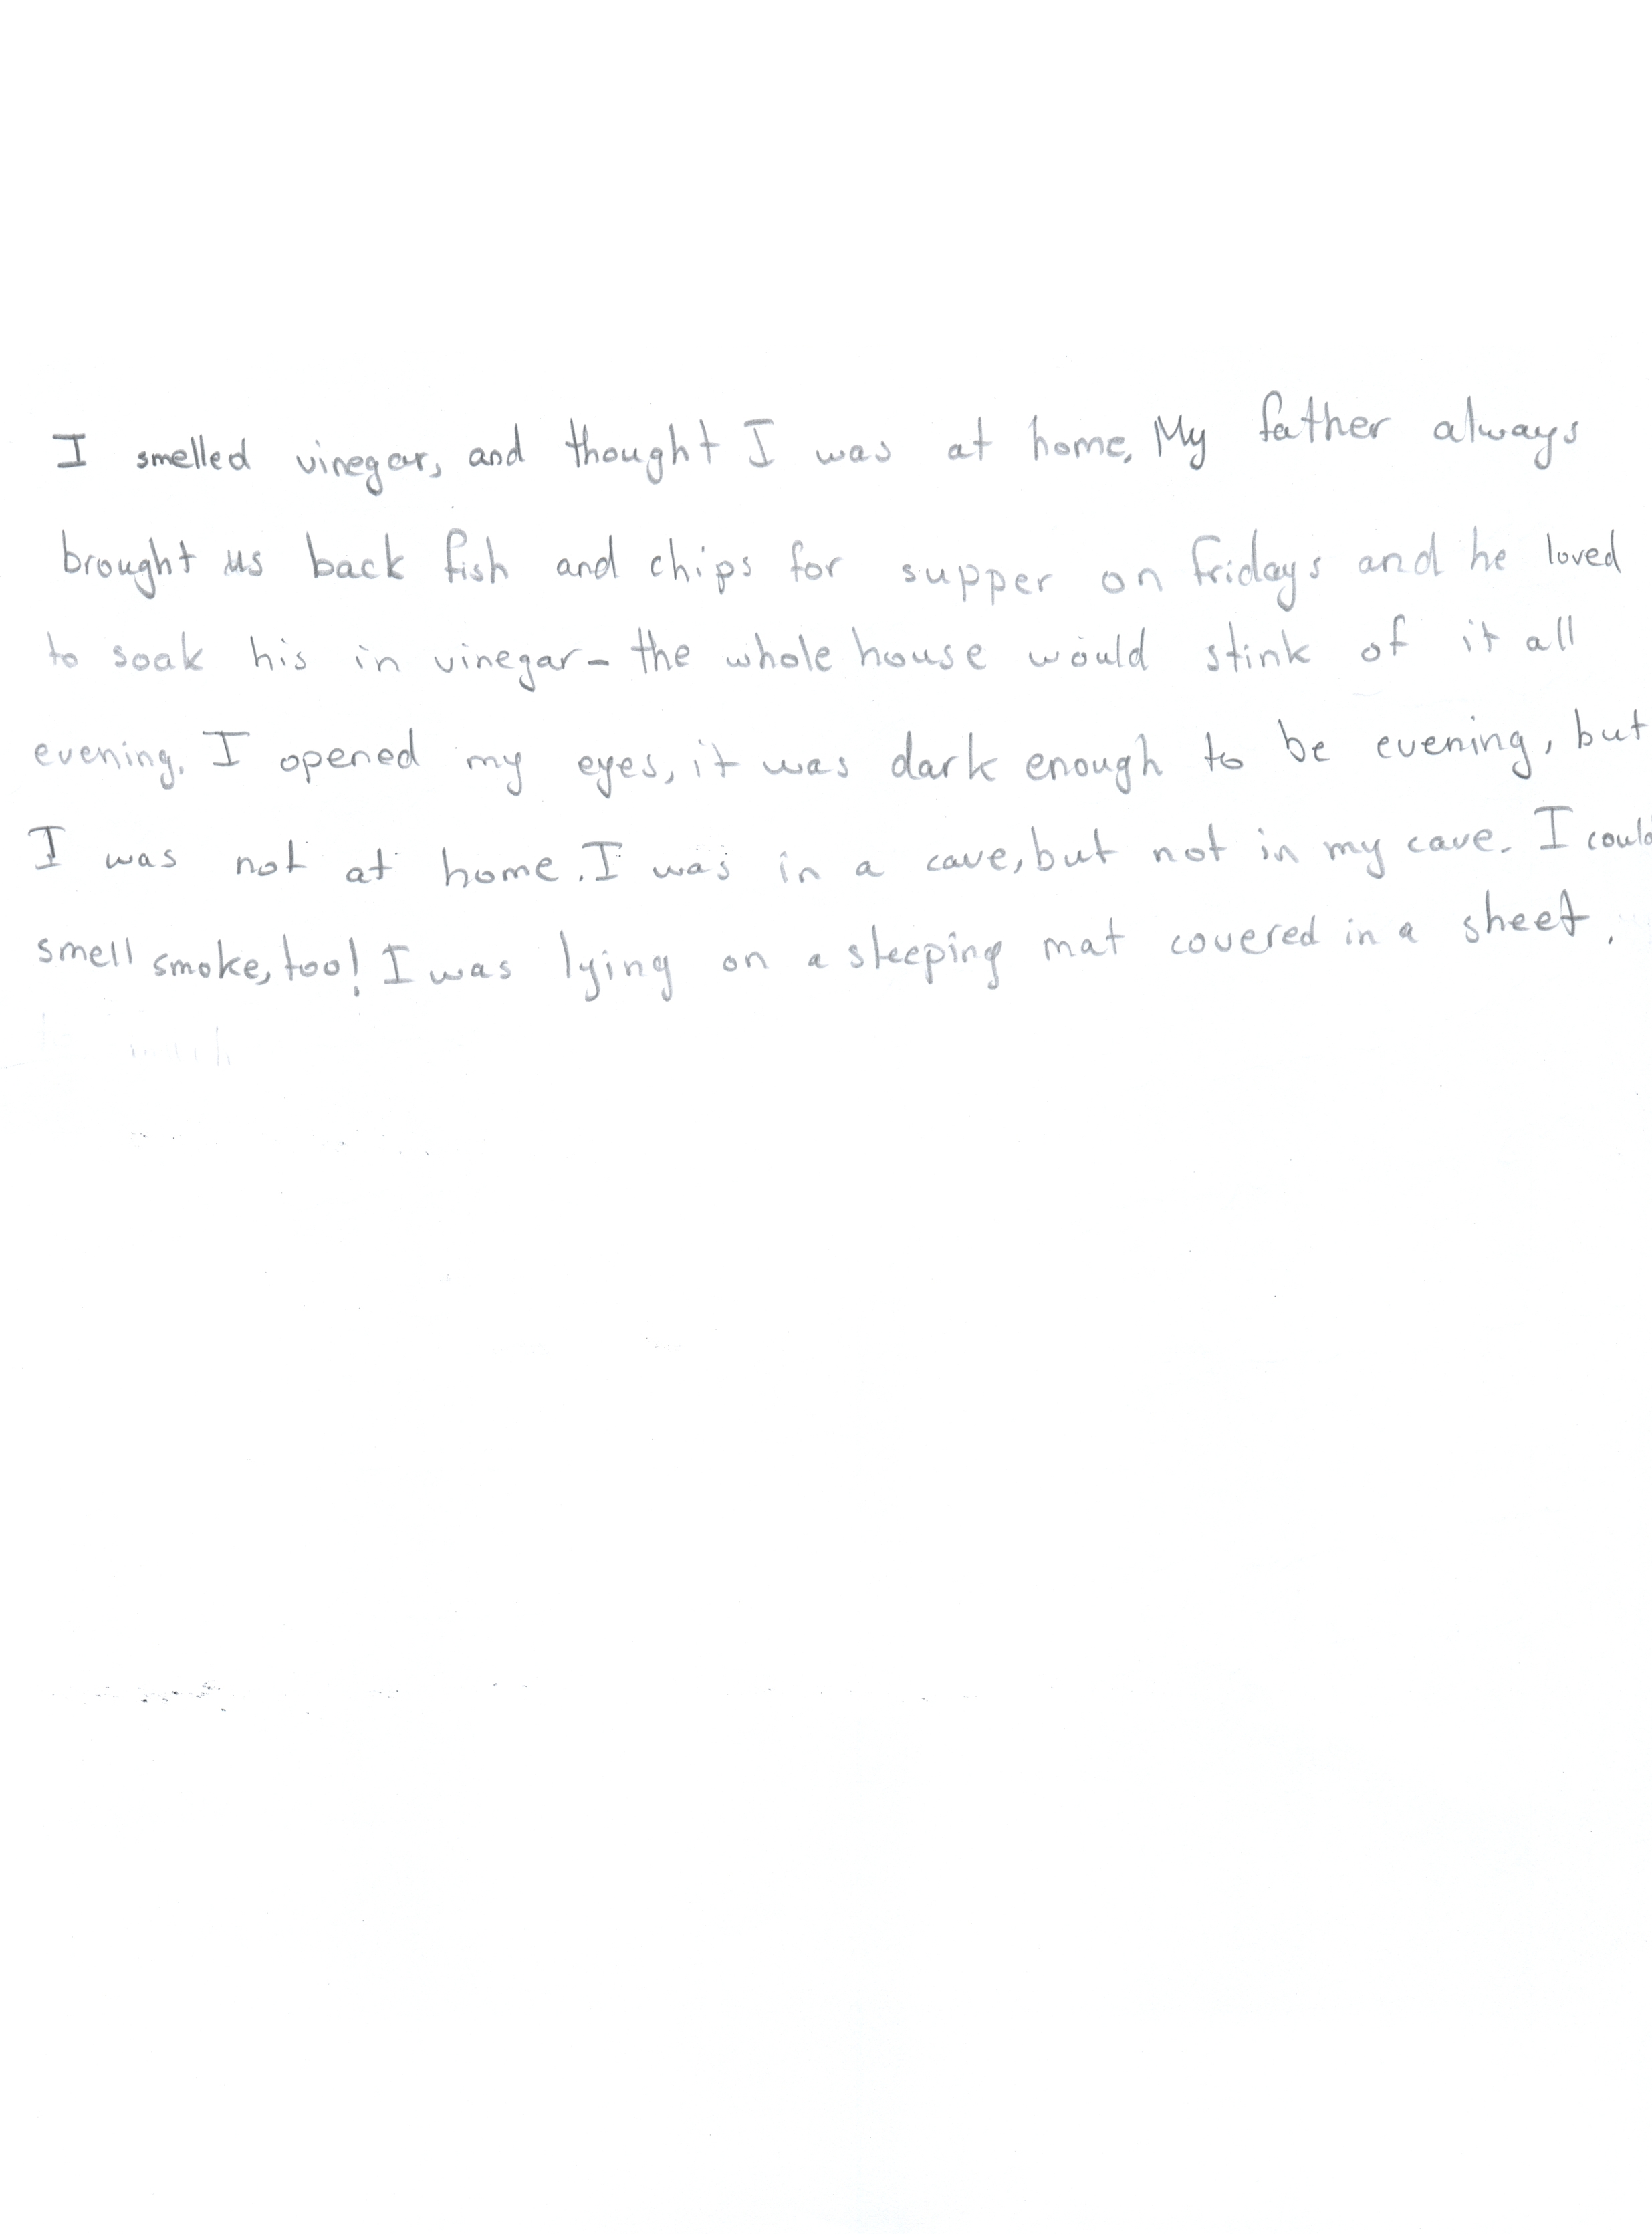 I smelled vinegar, and thought I was at home. My father always
brought us back fish and chips for supper on fridays and he loved
to soak his in vinegar - the whole house would stink of it all
evening. I opened my eyes, it was dark enough to be evening, but
I was not at home. I was in a cave, but not in my cave. I could
smell smoke, too! I was lying on a sleeping mat covered in a sheet.